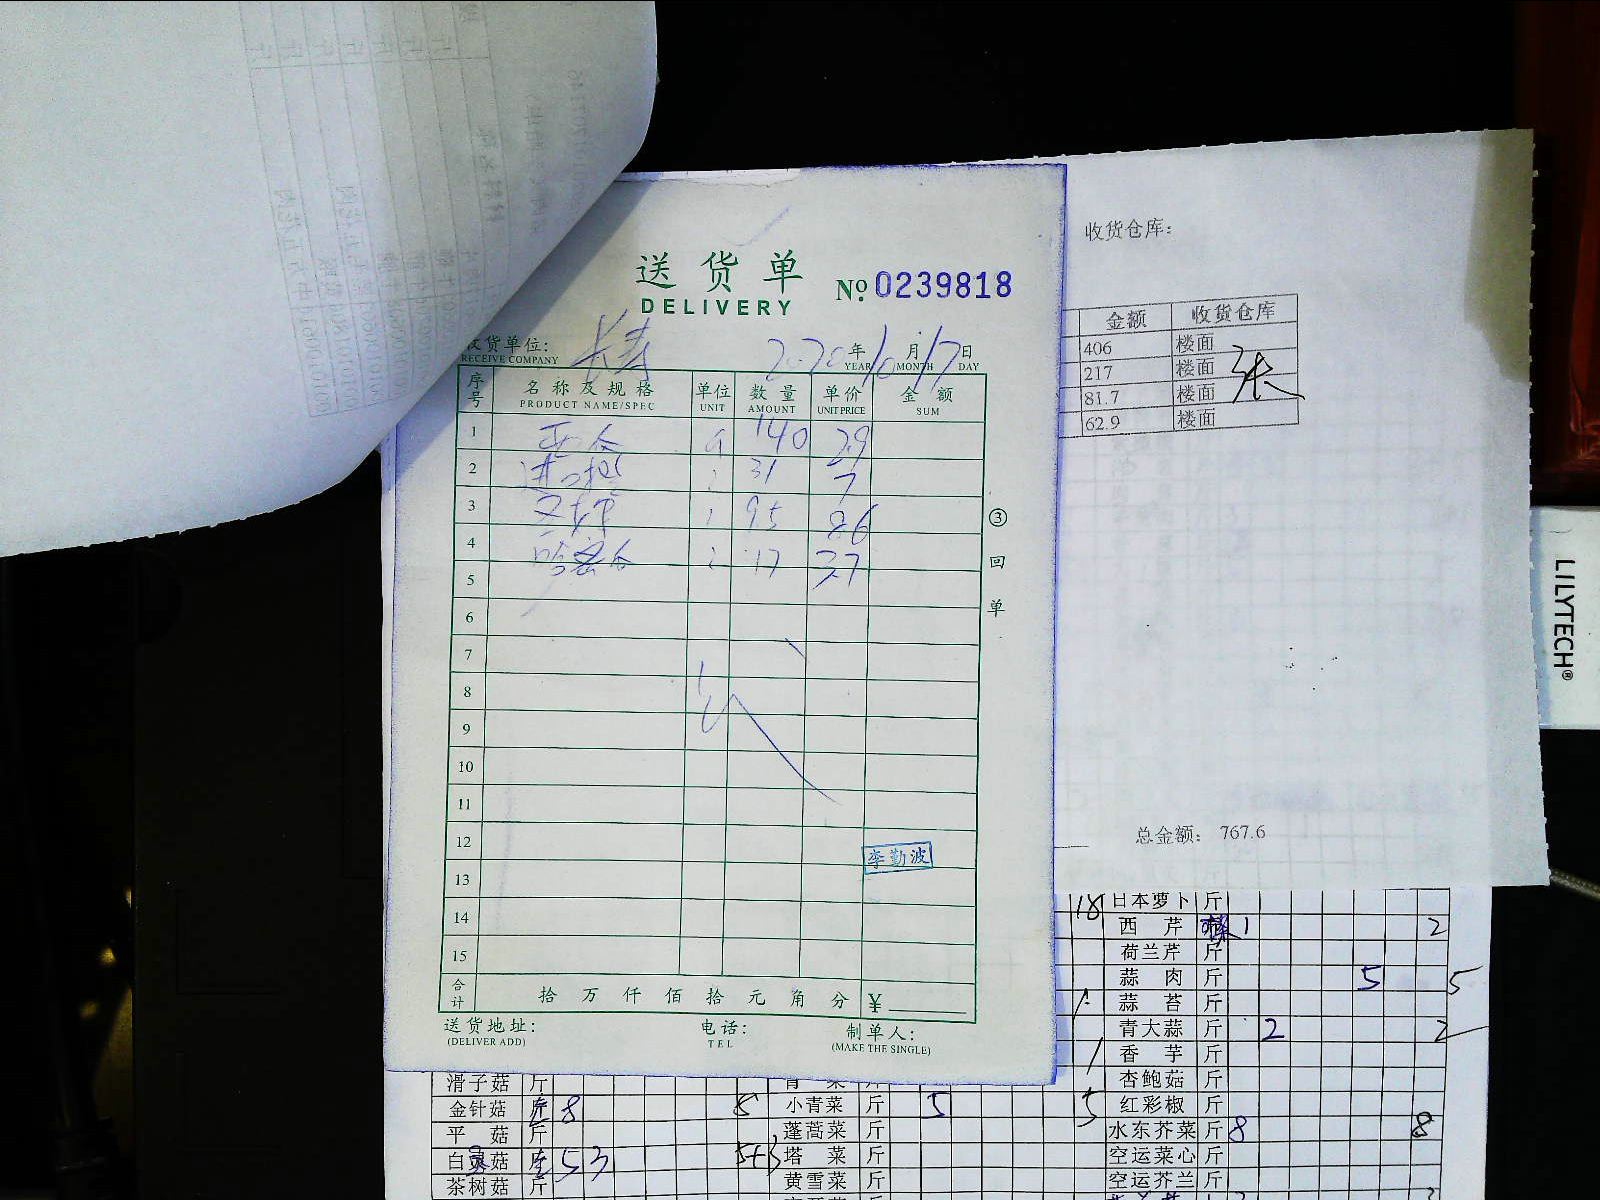 送货单
DELIVERY
No 0239818
收货仓库:
收货单位: 长寿
RECEIVE COMPANY
2020年10月17日
YEAR MONTH DAY
序号 名称及规格 单位 数量 单价 金额
PRODUCT NAME/SPEC UNIT AMOUNT UNIT PRICE SUM
1 西瓜 140 2.9
2 31 7
3 9.5 8.6
4 哈密瓜 17 3.7
5
6
7
8
9
10
11
12
13
14
15
李勤波
合计 拾万仟佰拾元角分 ¥
送货地址:
(DELIVER ADD)
电话:
TEL
制单人:
(MAKE THE SINGLE)
③回单
金额 收货仓库
406 楼面
217 楼面
81.7 楼面
62.9 楼面
张
总金额: 767.6
LILYTECH®
18 日本萝卜 斤
西芹 1 2
荷兰芹 斤
蒜肉 斤 5 5
蒜苔 斤
青大蒜 斤 2 2
香芋 斤
杏鲍菇 斤
滑子菇 斤
金针菇 8 8 小青菜 斤 5 5 红彩椒 斤
平菇 斤 蓬蒿菜 斤 水东芥菜 斤 8 8
白灵菇 5 3 5+3 塔菜 斤 空运菜心 斤
茶树菇 斤 黄雪菜 斤 空运芥兰 斤